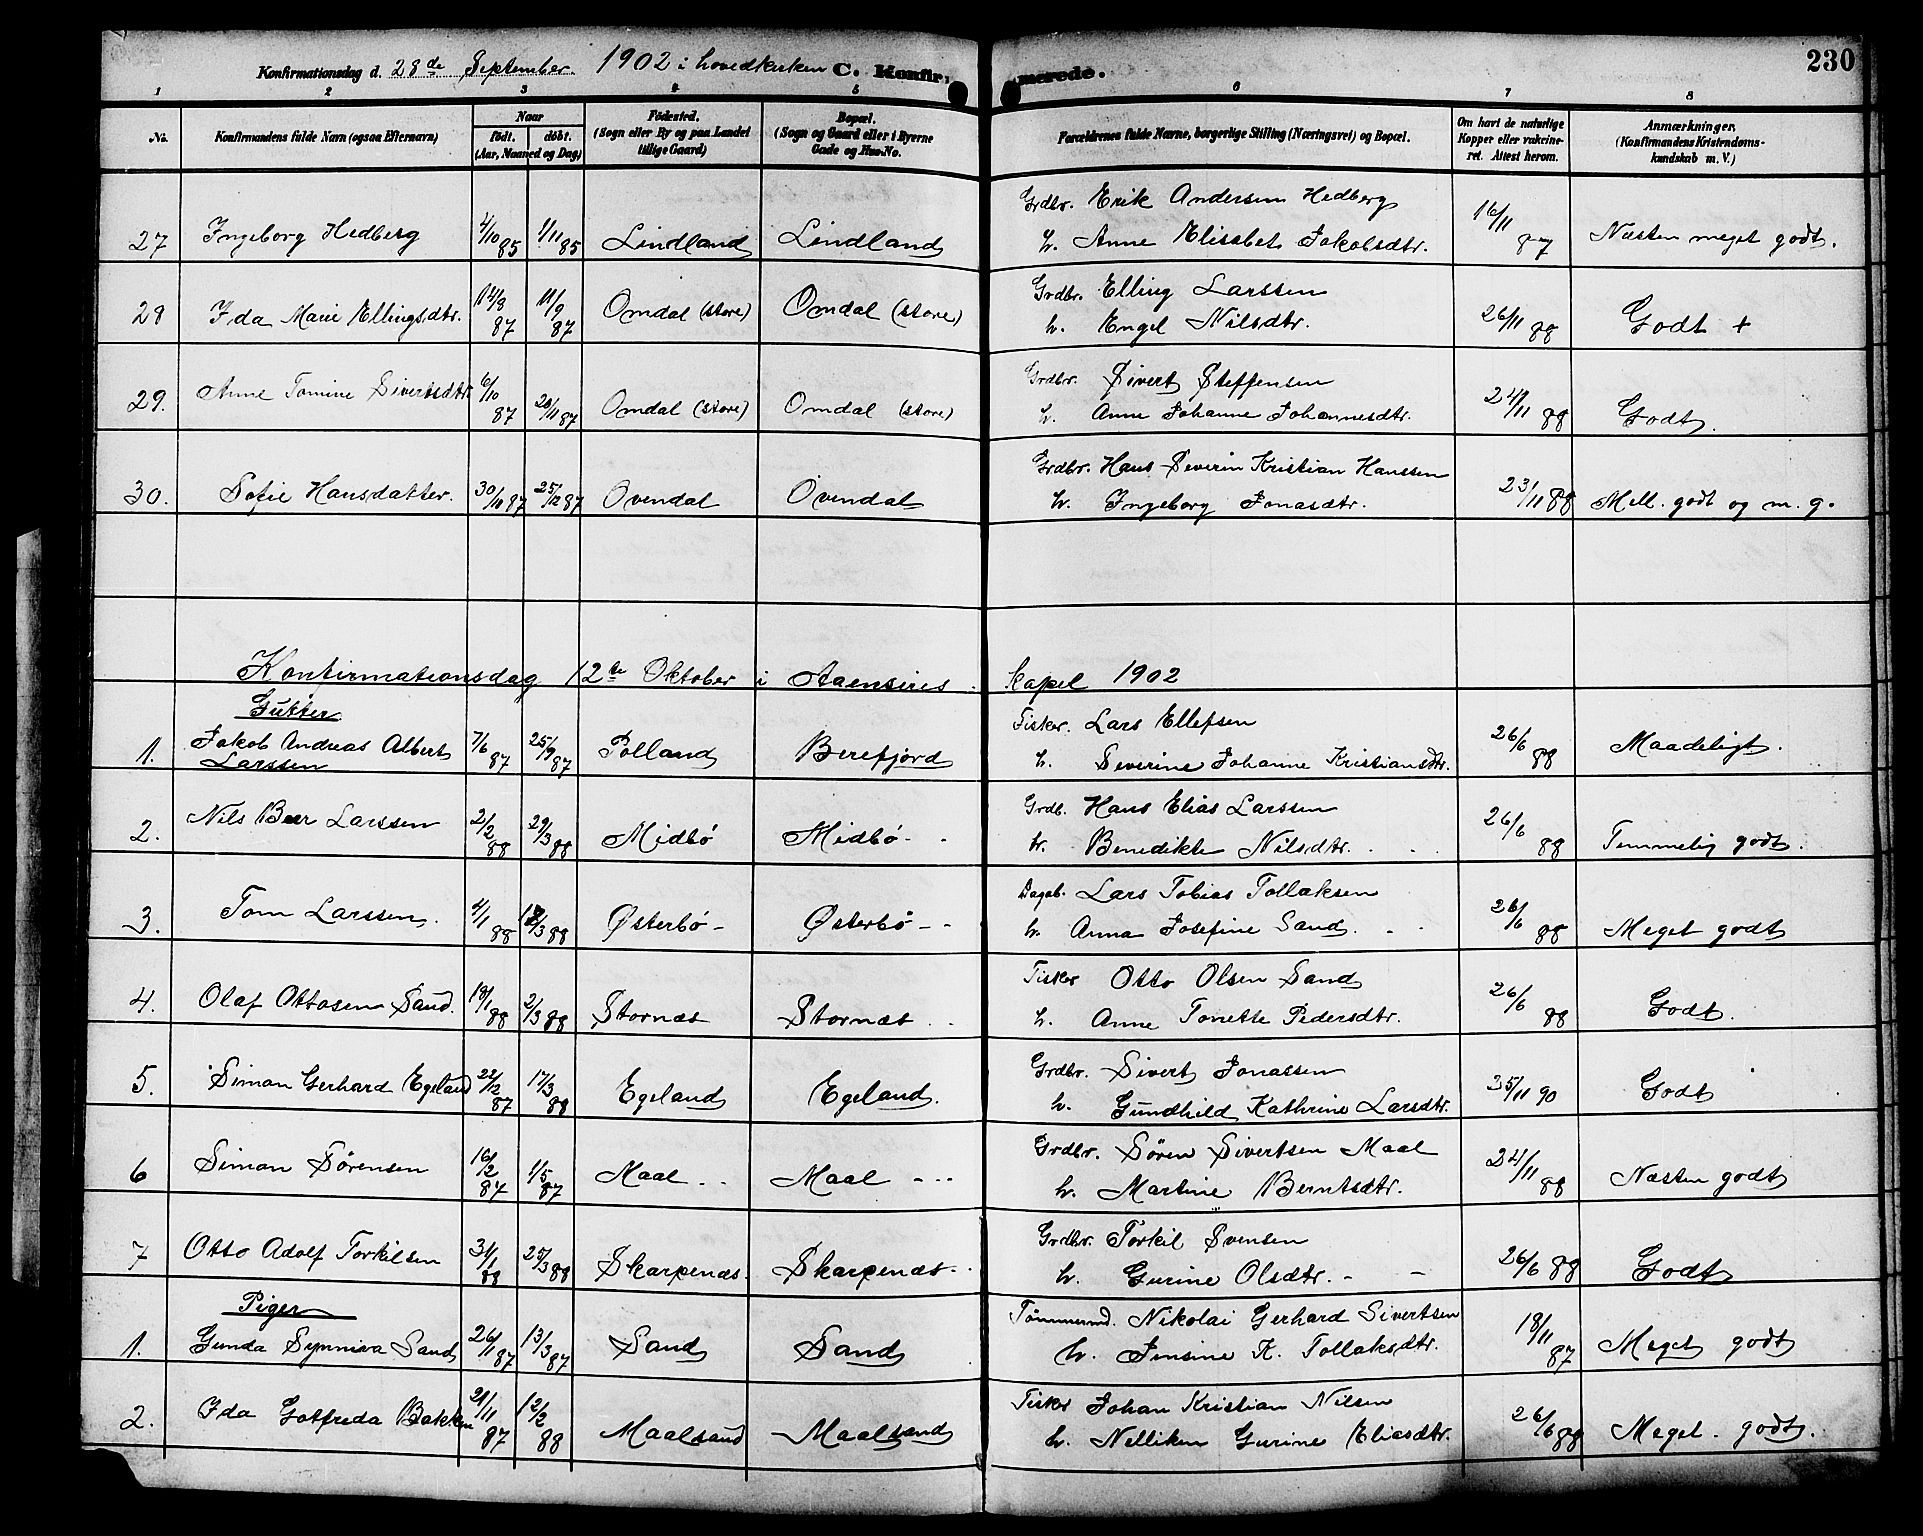 230
Konfirmationsdag d. 28de September 1902 i hovedkirken C. Konfirmerede.
1 2 3 4 5 6 7 8
No. Konfirmandens fulde Navn (ogsaa Efternavn) Naar födt. döbt. (Aar, Maaned og Dag) Födested. (Sogn eller By og paa Landet tillige Gaard) Bopæl. (Sogn og Gaard eller i Byerne Gade og Hus-No. Forældrenes fulde Navne, borgerlige Stilling (Næringsvei) og Bopæl. Om havt de naturlige Kopper eller vakcineret. Attest herom. Anmærkninger. (Konfirmandens Kristendomskundskab m. V.)
27 Ingeborg Hedberg 4/10 85 1/11 85 Lindland Lindland Grdbr. Erik Andersen Hedberg h. Anne Elisabet Jakobsdtr. 16/11 87 Næsten meget godt.
28 Ida Marie Ellingsdtr. 14/8 87 11/9 87 Omdal (store) Omdal (store) Grdbr. Elling Larssen h. Engel Nilsdtr. 26/11 88 Godt +
29. Anne Tomine Sivertsdtr. 6/10 87 20/11 87 Omdal (store) Omdal (store) Grdbr. Sivert Steffensen h. Anne Johanne Johannesdtr. 24/11 88 Godt.
30. Sofie Hansdatter. 30/10 87 25/12 87 Ovendal Ovendal Grdbr. Hans Severin Kristian Hanssen h. Ingeborg Jonasdtr. 23/11 88 Mell. godt og m. g.
Konfirmationsdag 12te Oktober i Aaensires kapel 1902
Gutter
1. Jakob Andreas Albert Larssen 7/6 87 25/9 87 Polland Berefjord Fisker. Lars Ellefsen h. Severine Johanne Kristiansdtr. 26/6 88 Maadeligt.
2. Nils Beer Larssen 2/2 88 29/3 88 Midbö Midbö Grdb. Hans Elias Larssen h. Benedikte Nilsdtr. 26/6 88 Temmelig godt.
3. Tom Larssen. 4/1 88 /3 88 Østerbö Østerbö Dageb. Lars Tobias Tollaksen h. Anna Josefine Sand. 26/6 88 Meget godt
4. Olaf Ottosen Sand. 19/1 88 2/3 88 Stornæs Stornæs Fisker Otto Olsen Sand h. Anne Tonette Pedersdtr. 26/6 88 Godt.
5. Simon Gerhard Egeland 22/12 87 17/3 88 Egeland Egeland. Grdbr. Sivert Jonassen h. Gundhild Kathrine Larsdtr. 25/11 90 Godt
6 Simon Sörensen 16/2 87 1/5 87 Maal Maal Grdbr. Sören Sivertsen Maal h. Martine Berntsdtr. 24/11 88 Næsten godt
7 Otto Adolf Torkilsen 31/1 88 25/3 88 Skarpenæs. Skarpenæs. Grdbr. Torkil Svensen h. Gurine Olsdtr. 26/6 88 Godt
Piger
1. Gunda Synniva Sand 26/1 87 13/3 87 Sand Sand Tömmermd. Nikolai Gerhard Sivertsen h. Jensine K. Tollaksdtr. 18/11 87 Meget godt
2. Ida Gotfreda Bakken 21/11 87 12/2 88 Maalsand Maalsand Fisker Johan Kristian Nilsen h. Nelliken Gurine Eliasdtr. 26/6 88 Meget godt.